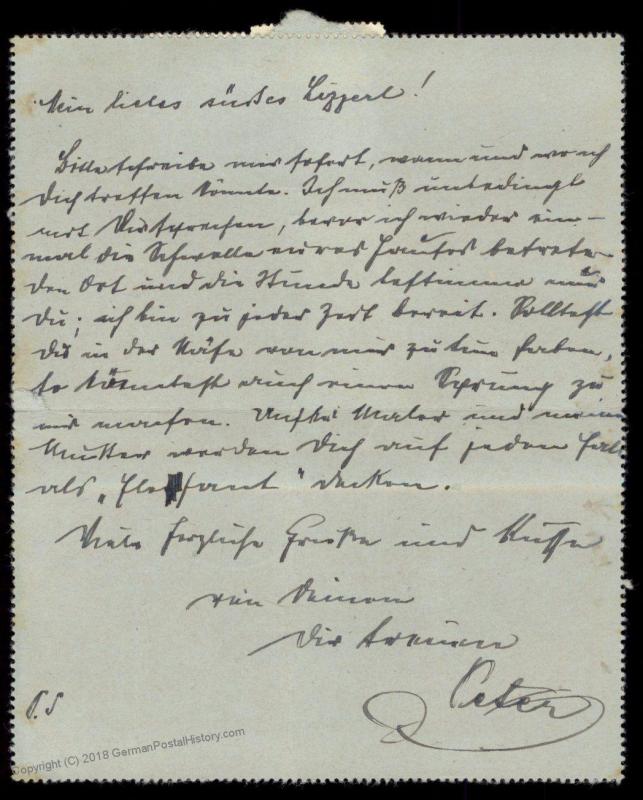 Mein liebes süßes Lizzerl!
Bitte schreibe mir sofort, wann und wo ich
Dich treffen könnte. Ich muß unbedingt
mit Dir sprechen, bevor ich wieder ein-
mal die Schwelle eures Hauses betrete
den Ort und die Stunde bestimme nur
Du; ich bin zu jeder Zeit bereit. Solltest
Du in der Nähe von mir zu tun haben,
so könntest auch einen Sprung zu
mir machen. Unser Maler und meine
Mutter werden Dich auf jeden Fall
als „Elefant" decken.
Viele herzliche Grüße und Küsse
von Deinem
Dir treuen
Peter
P.S
Copyright (C) 2018 GermanPostalHistory.com